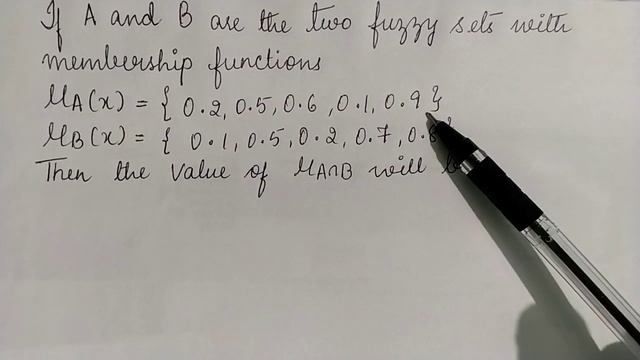 If A and B are the two fuzzy sets with
membership functions
μA(x) = { 0.2, 0.5, 0.6, 0.1, 0.9 }
μB(x) = { 0.1, 0.5, 0.2, 0.7, 0.8 }
Then the value of μA∩B will